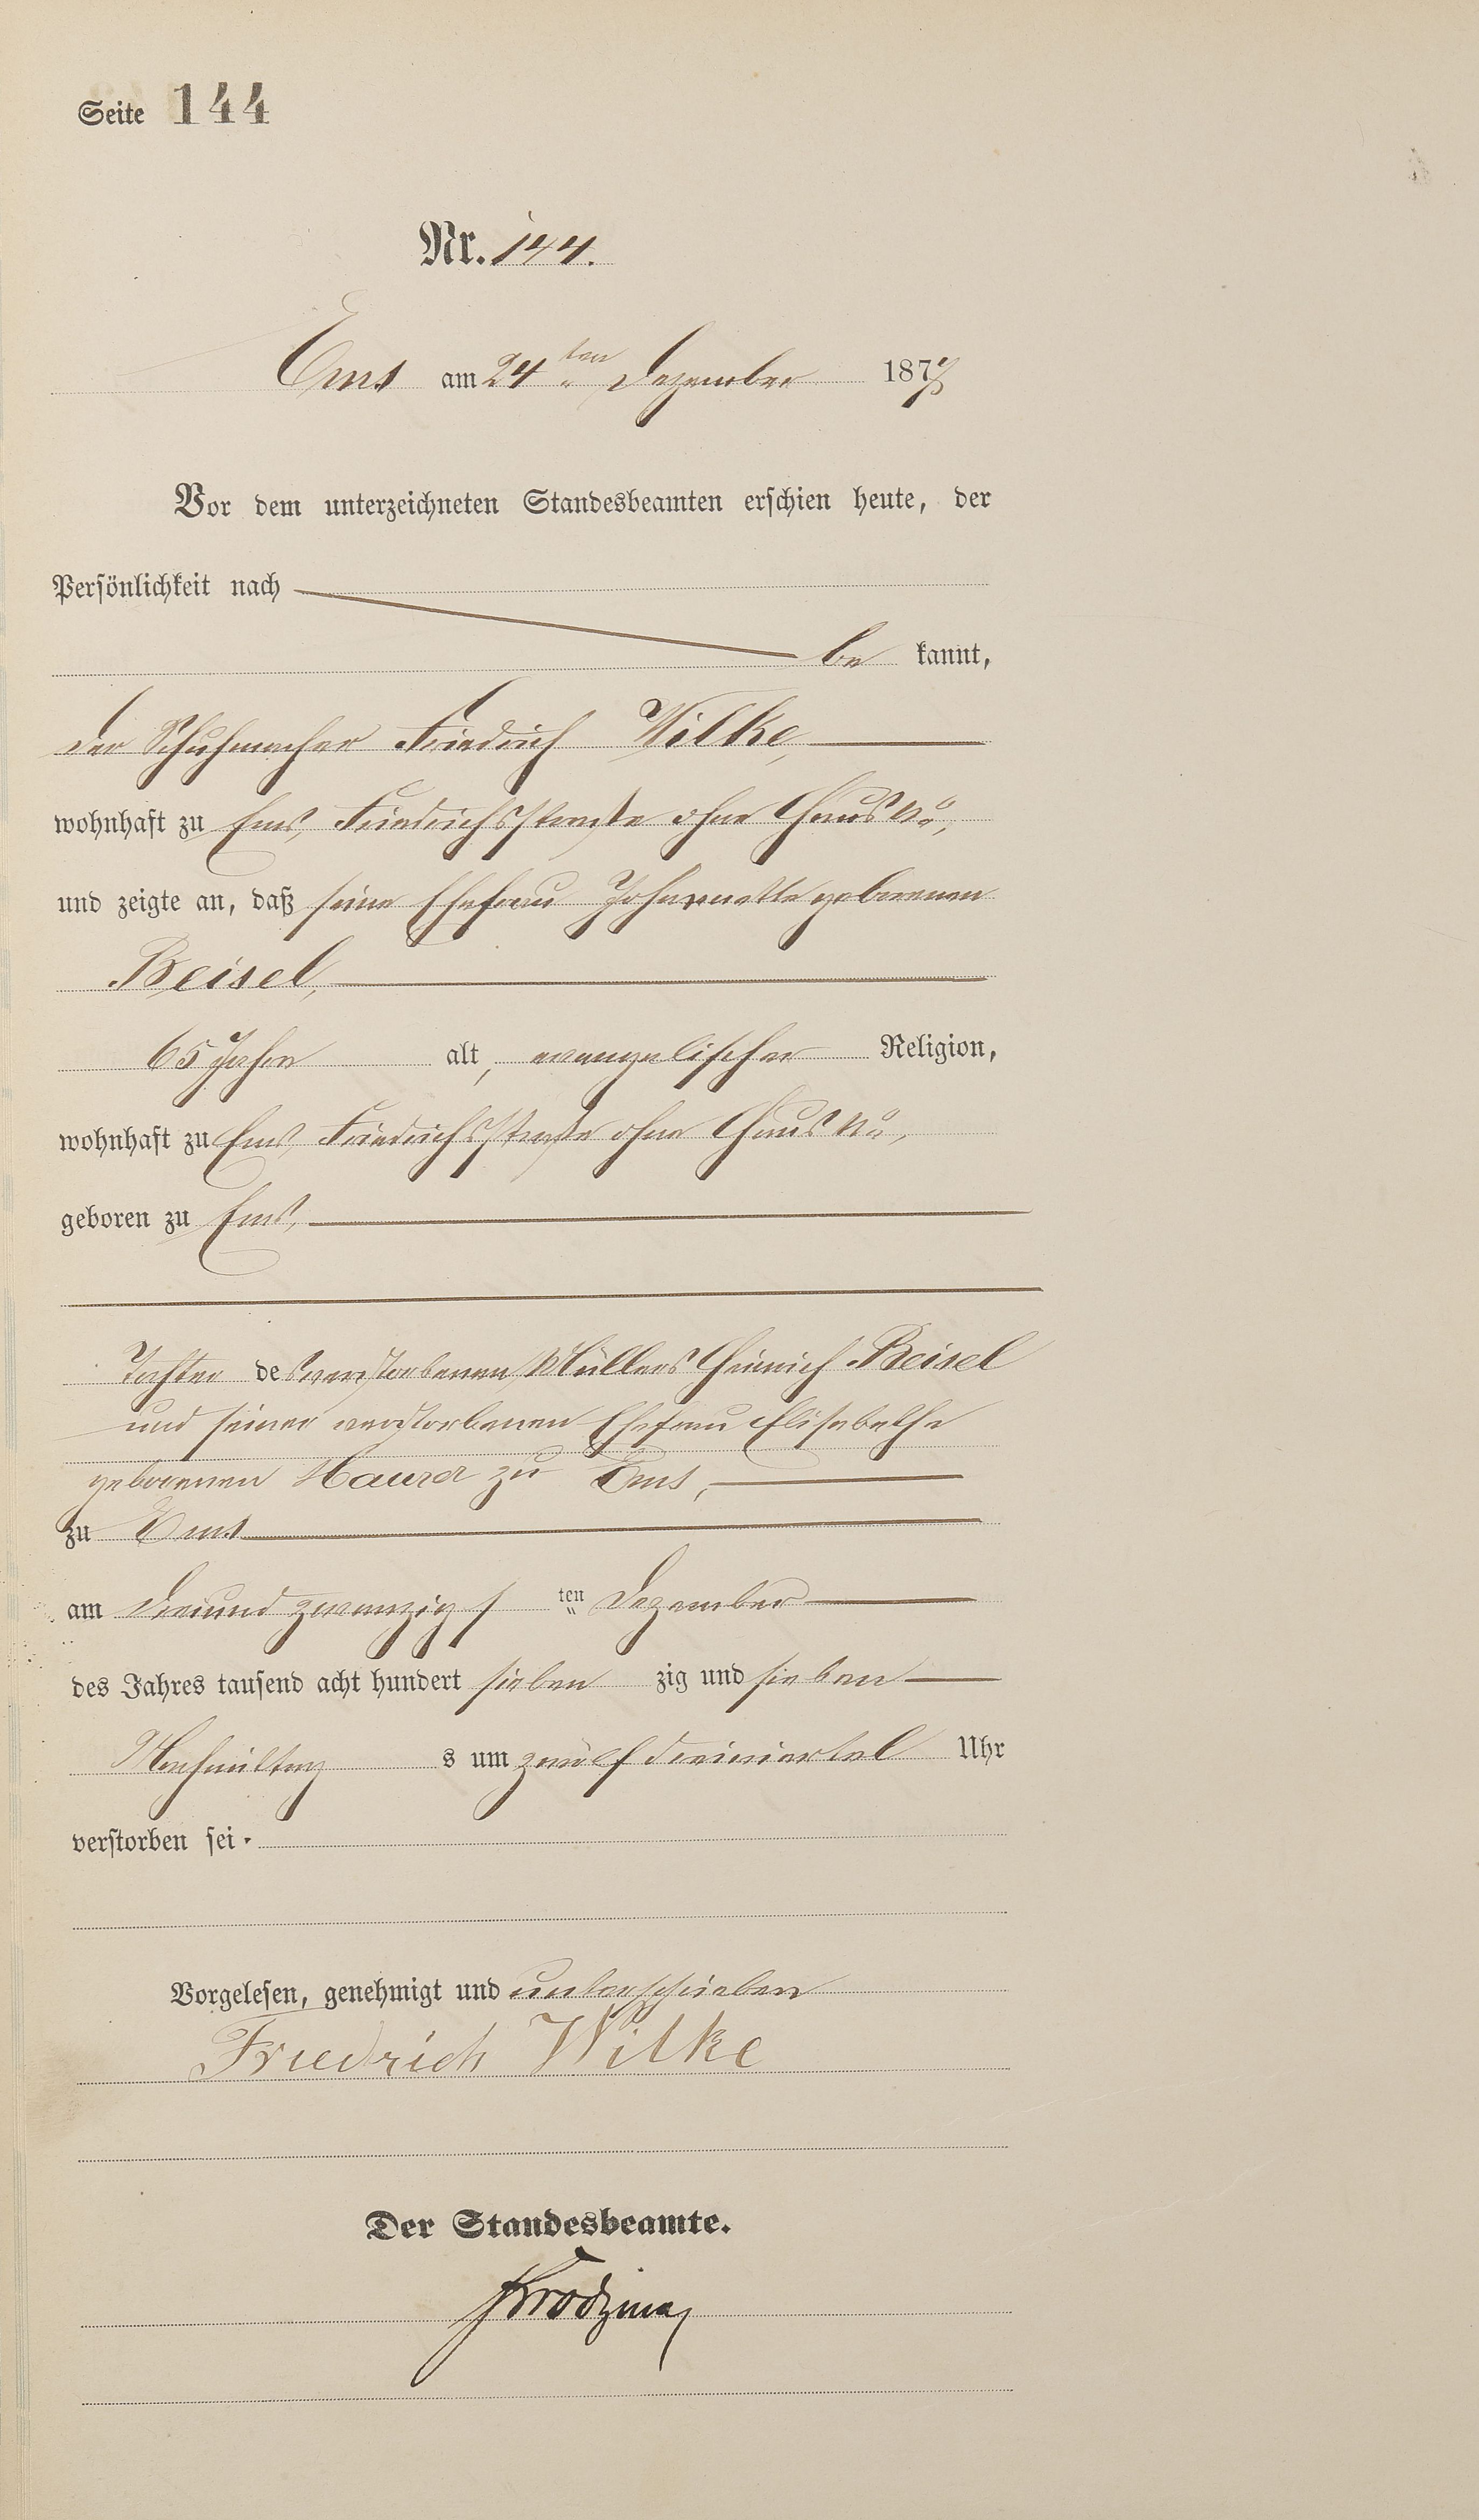 Seite 144
Nr. 144.
Ems am 24ten Dezember 1877
Vor dem unterzeichneten Standesbeamten erschien heute, der
Persönlichkeit nach
be kannt,
der Schuhmacher Friedrich Wilke,
wohnhaft zu Ems, Friedrichsstraße ohne Haus No,
und zeigte an, daß seine Ehefrau Johannette geborenen
Beisel,
65 Jahre alt, evangelischer Religion,
wohnhaft zu Ems, Friedrichsstraße ohne Haus No,
geboren zu Ems,
Tochter des verstorbenen Müllers Heinrich Beisel
und seiner verstorbenen Ehefrau Elisabethe
geborenen Maurer zu Ems,
zu Ems
am dreiundzwanzigsten Dezember
des Jahres tausend acht hundert sieben zig und sieben
Nachmittags um zwölf dreiviertel Uhr
verstorben sei.
Vorgelesen, genehmigt und unterschrieben
Friedrich Wilke
Der Standesbeamte.